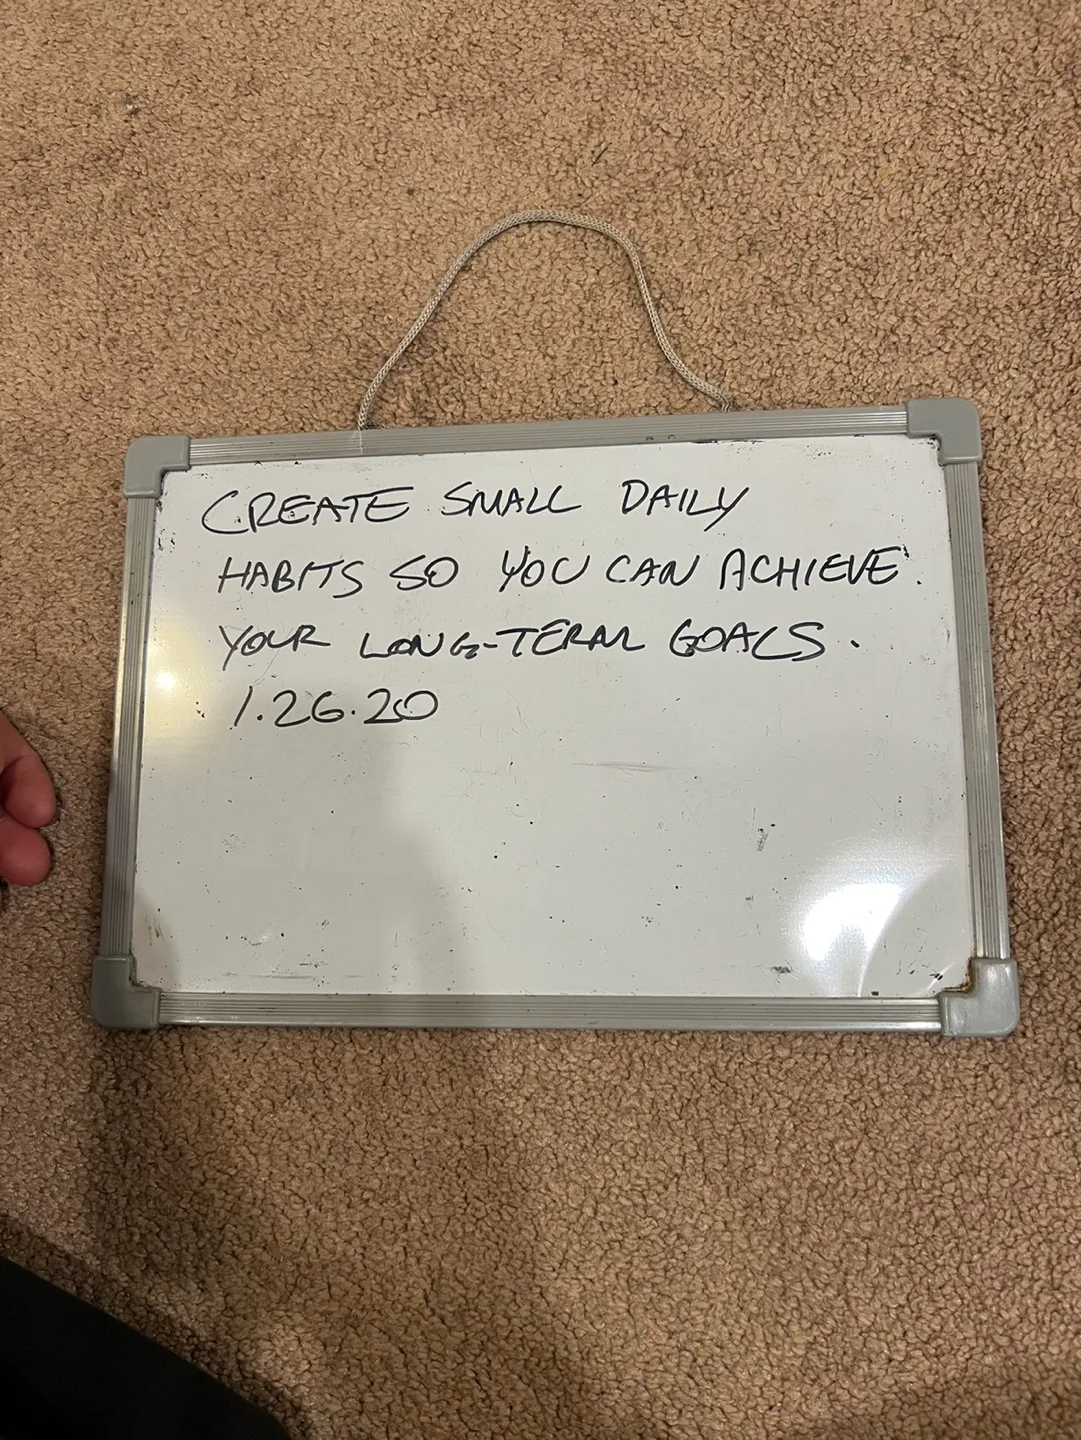 CREATE SMALL DAILY
HABITS SO YOU CAN ACHIEVE
YOUR LONG-TERM GOALS.
1.26.20